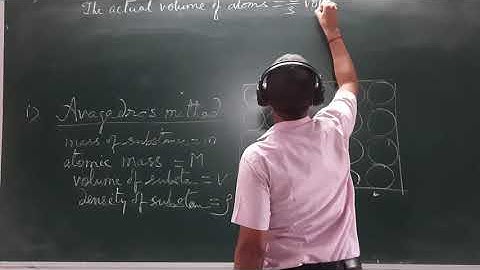 The actual volume of atoms =
i) Avagadro's method
mass of substance = m
atomic mass = M
volume of substa = V
density of substan = ρ
b